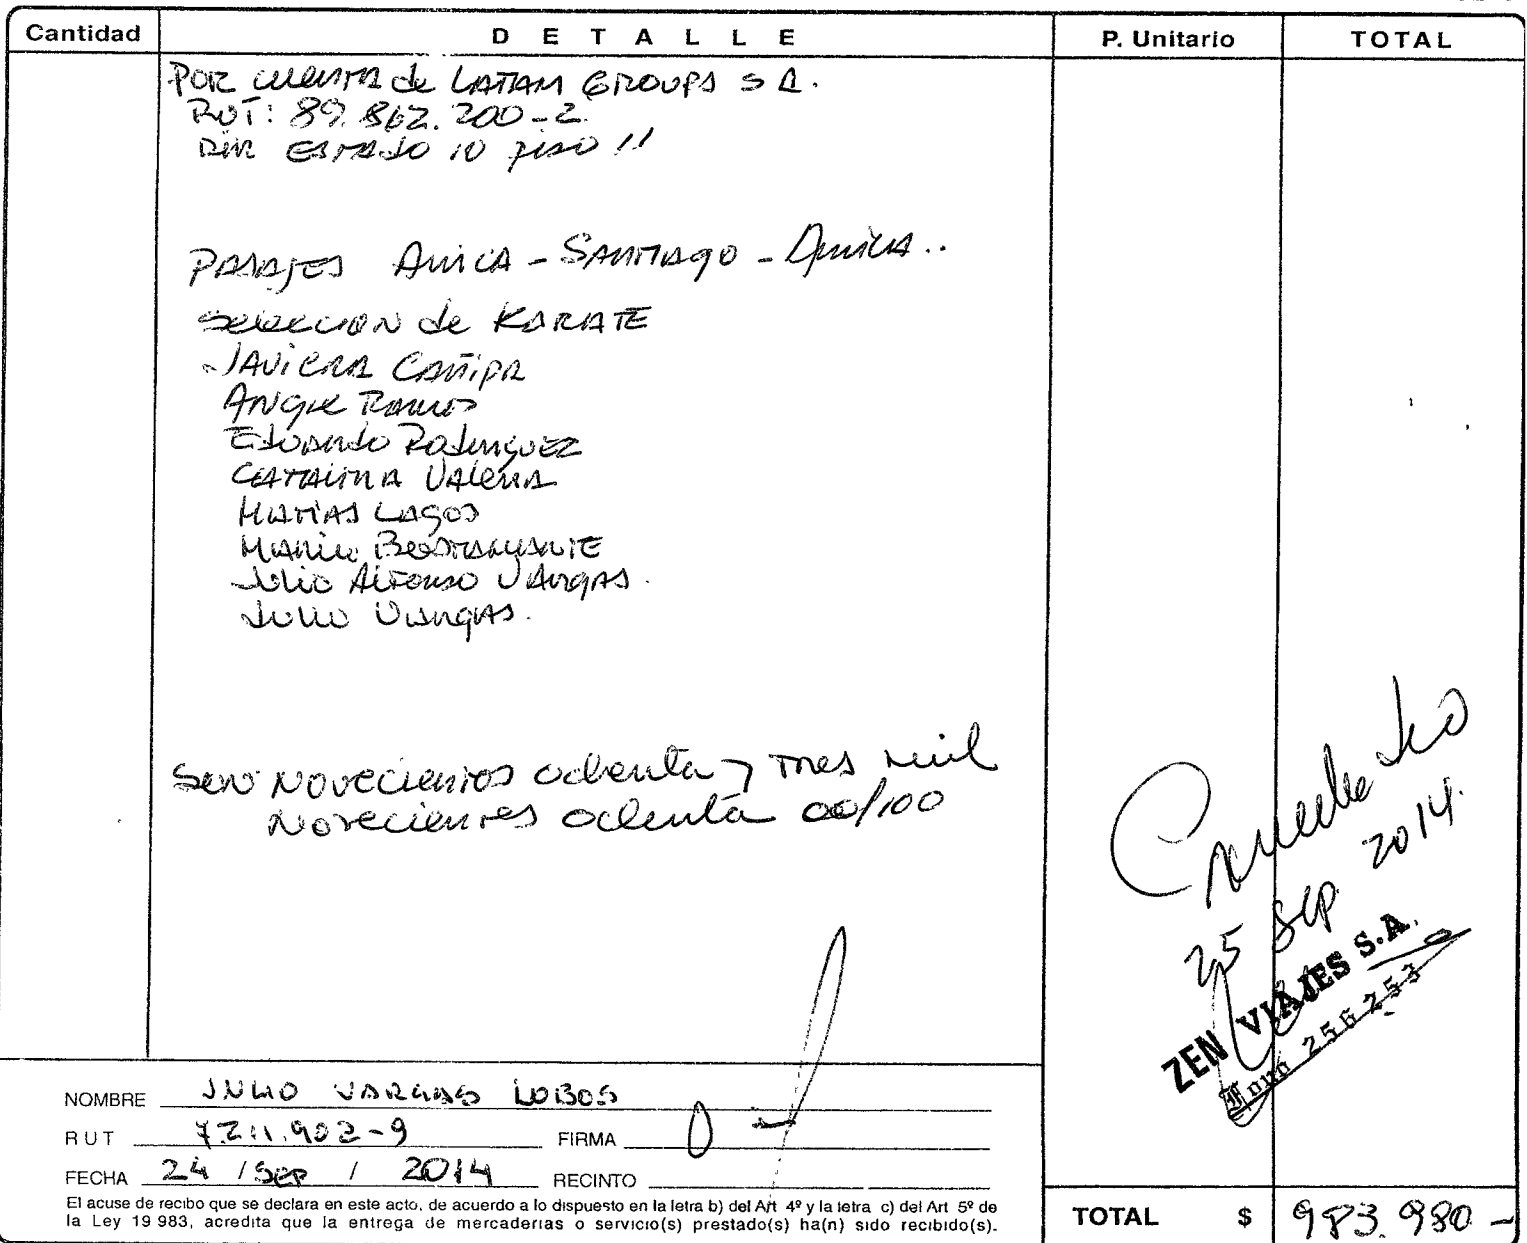 Cantidad DETALLE P. Unitario TOTAL
POR cuenta de LATAM GROUPS S A.
RUT: 89.862.200-2
DIR ESTADO 10 piso 11
PASAJES ARICA - SANTIAGO - ARICA..
SELECCION de KARATE
JAVIERA CAÑIPA
ANGIE RAMOS
EDUARDO RODRIGUEZ
CATALINA VALERIA
MATIAS LAGOS
BUSTAMANTE
JULIO ALFONSO VARGAS.
JULIO VARGAS.
SON: NOVECIENTOS ochenta y TRES mil
NOVECIENTOS ochenta 00/100
25 Sep 2014.
ZEN VIAJES S.A.
Fono 256253
NOMBRE JULIO VARGAS LOBOS
RUT 7.211.902-9 FIRMA
FECHA 24 / SEP / 2014 RECINTO
El acuse de recibo que se declara en este acto, de acuerdo a lo dispuesto en la letra b) del Art 4º y la letra c) del Art 5º de
la Ley 19 983, acredita que la entrega de mercaderias o servicio(s) prestado(s) ha(n) sido recibido(s).
TOTAL $ 983.980-